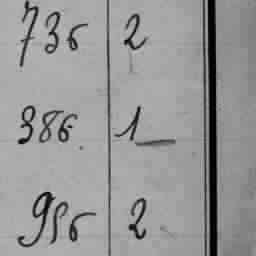 736 2
386. 1
956 2